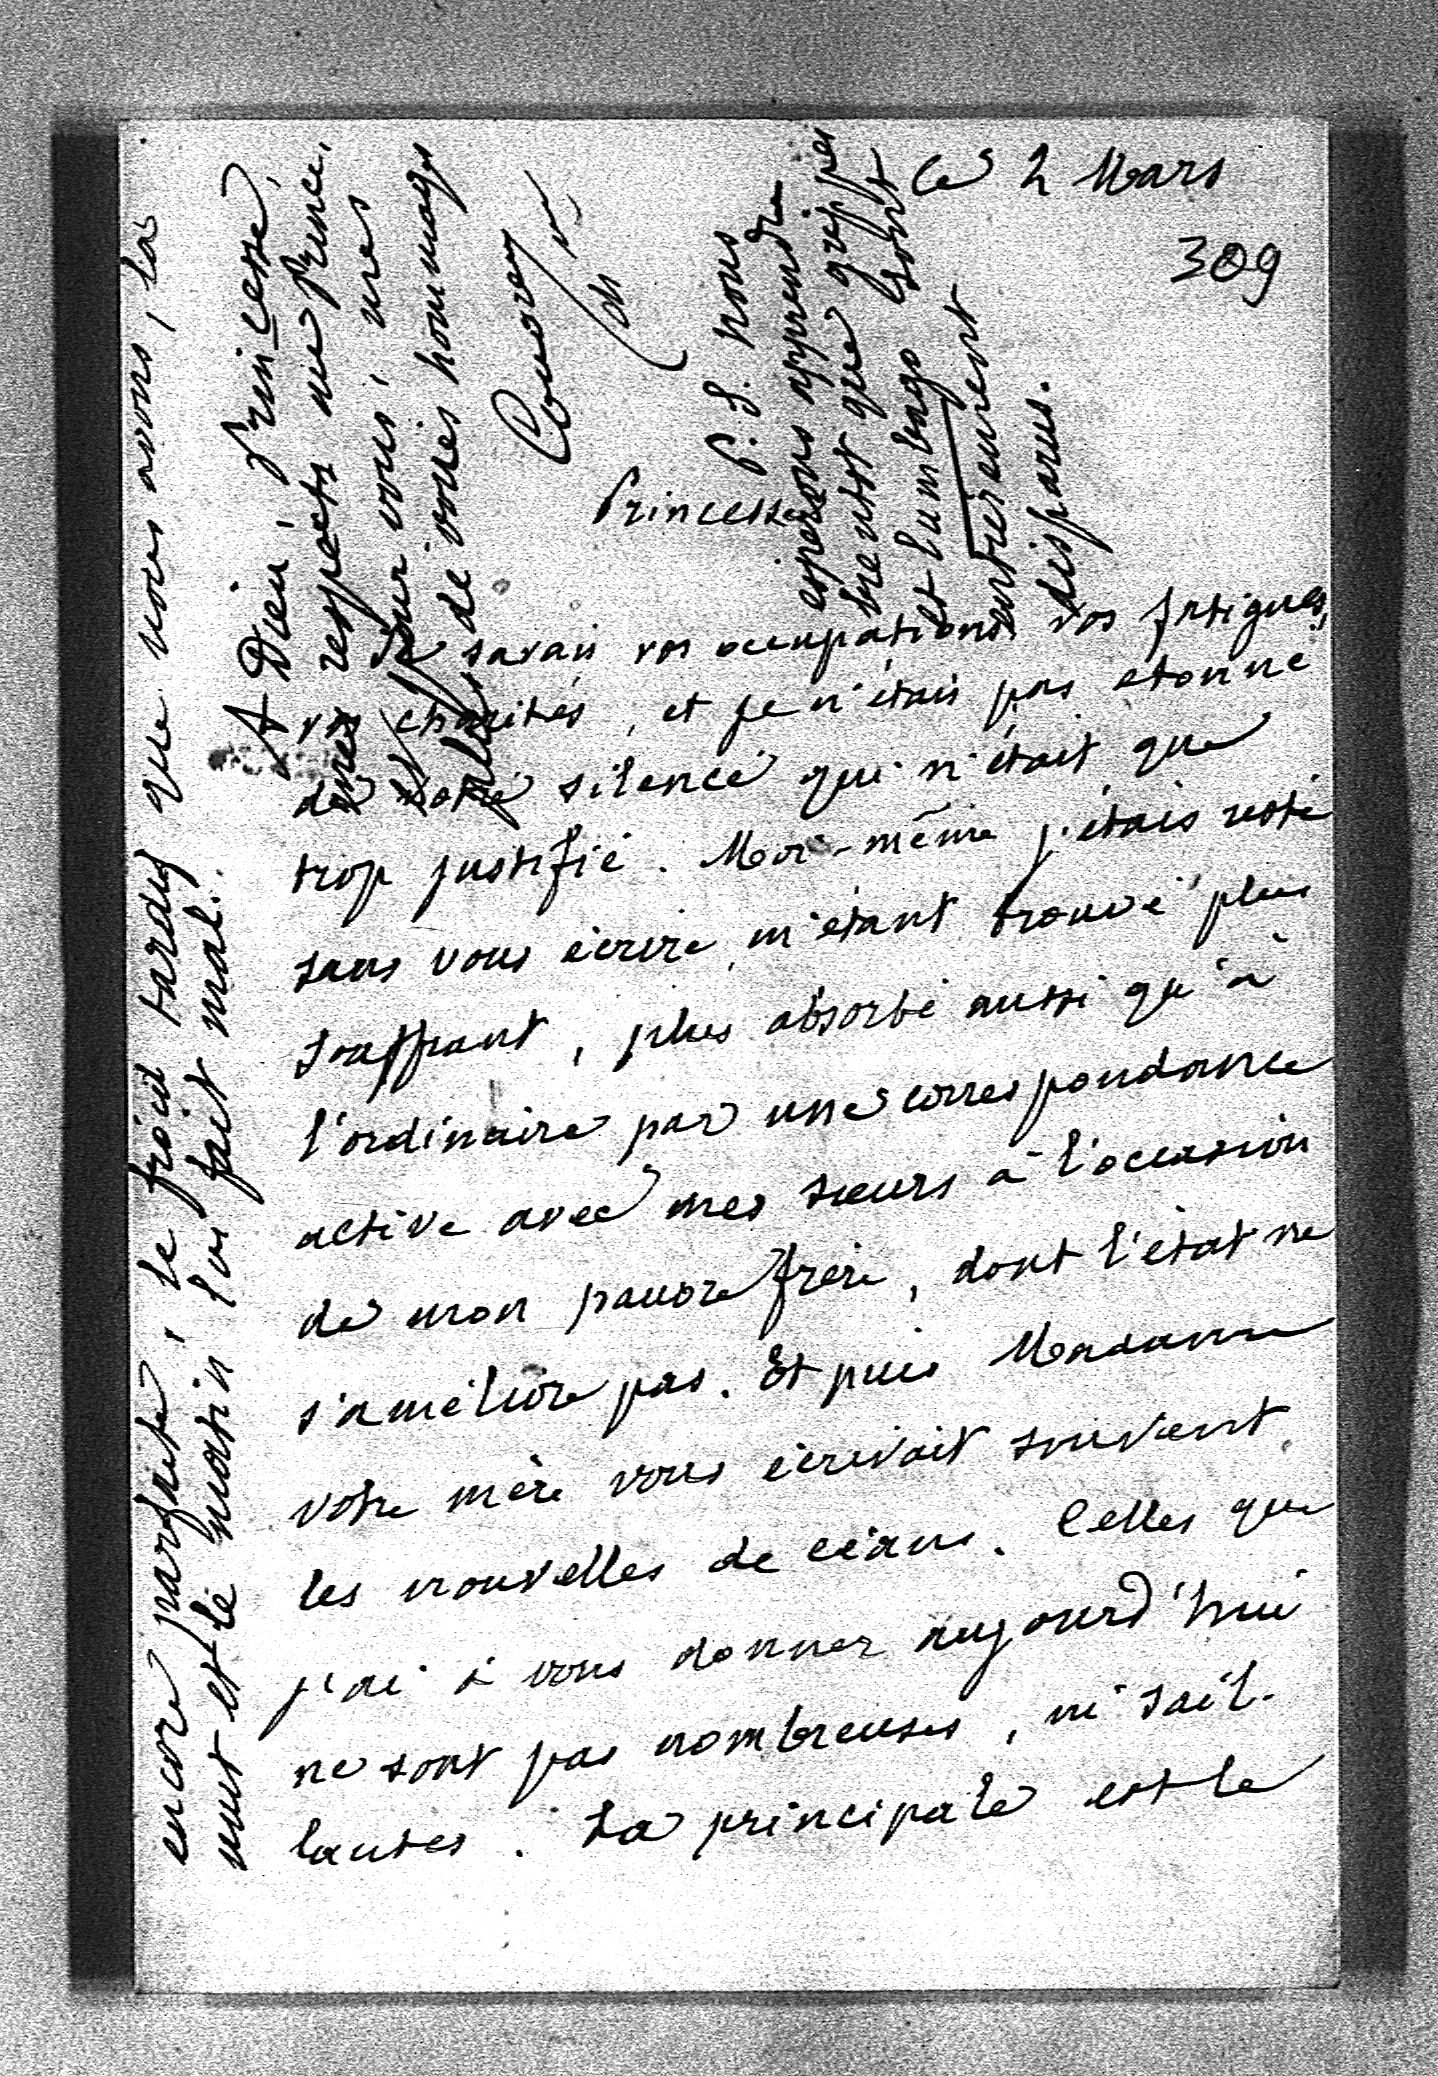 Ce 2 Mars
309
Princesse
Je savais vos occupations vos fatigues,
vos charités, et je n'étais pas etonné
de votre silence qui n'était que
trop justifié. Moi-même j'étais resté
sans vous écrire, m'étant trouvé plus
souffrant, plus absorbé aussi qu'à
l'ordinaire par une correspondance
active avec mes sœurs à l'occasion
de mon pauvre frère, dont l'état ne
s'améliore pas. Et puis Madame
votre mère vous écrivait souvent
les nouvelles de céans. Celles que
j'ai à vous donner aujourd'hui
ne sont pas nombreuses, ni sail-
lantes. La principale est le
encore parfaite, le froid tardif que nous avons, la
nuit et le matin lui fait mal.
A Dieu, Princesse,
mes respects au Prince,
et pour vous, mes
plus dévoués hommages
P. S. nous
espérons apprendre
bientôt que grippes
et lumbago sont
entièrement
disparus.